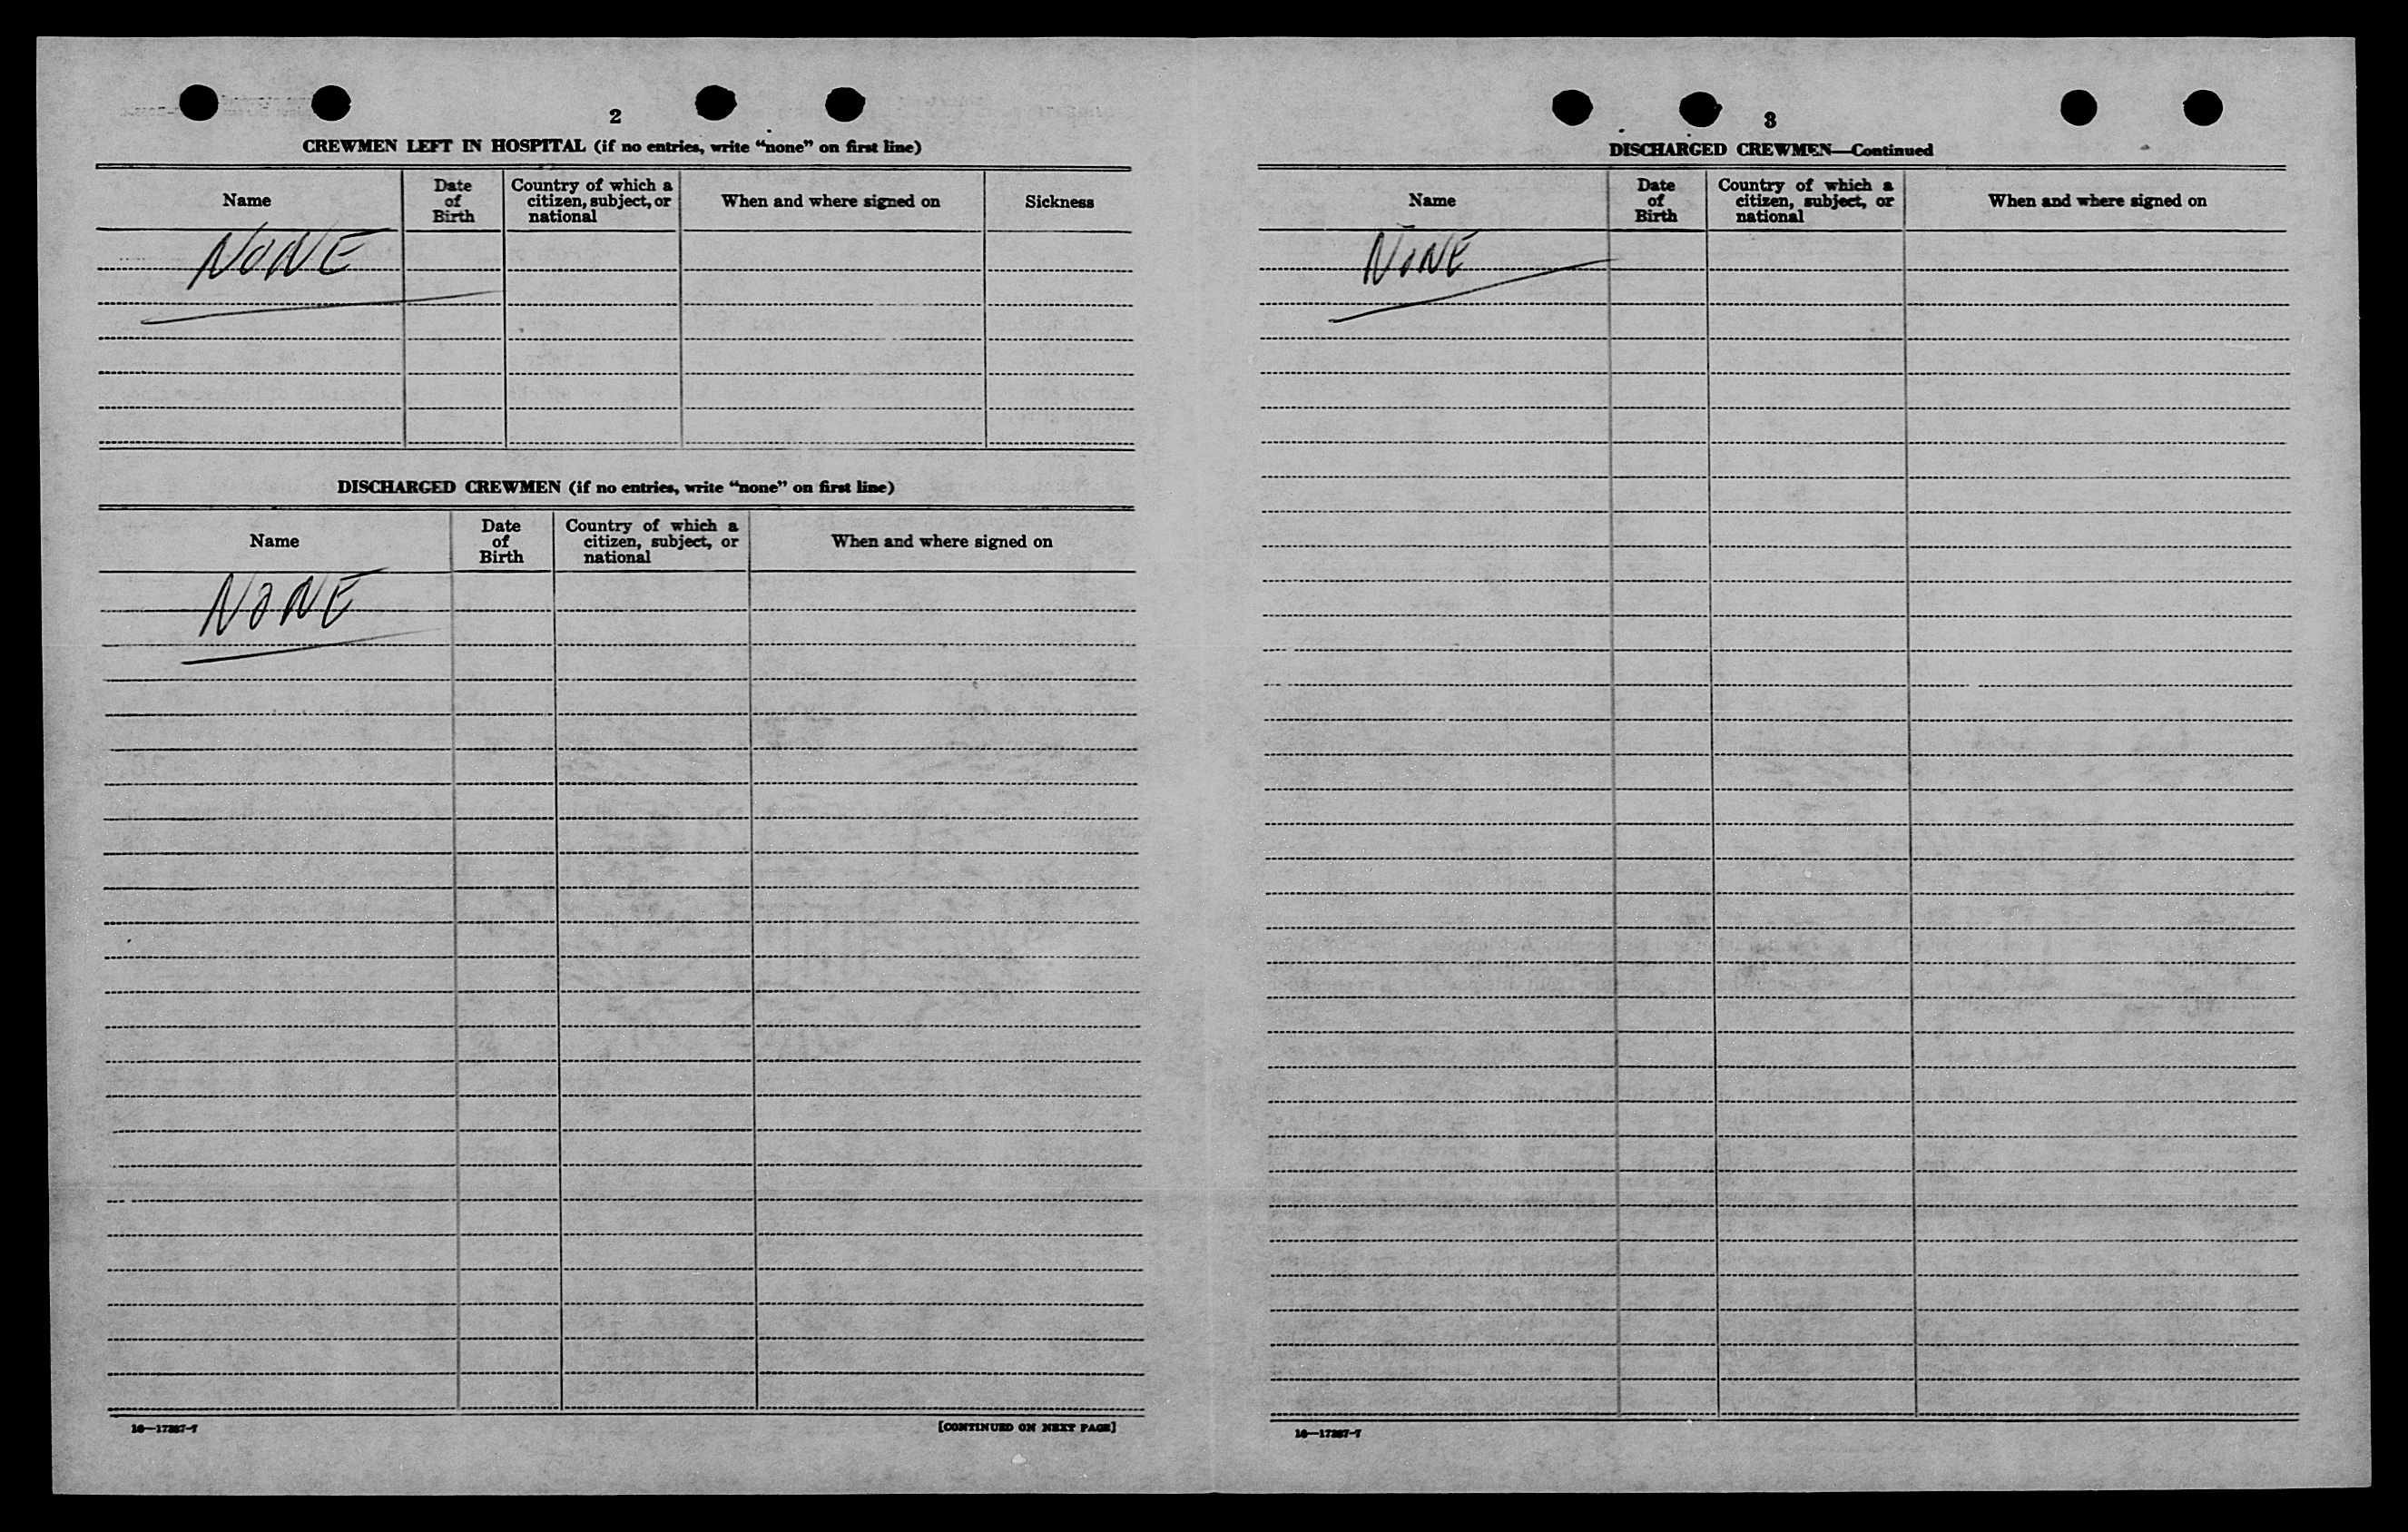 2
CREWMEN LEFT IN HOSPITAL (if no entries, write “none” on first line)
Name
Date of Birth
Country of which a citizen, subject, or national
When and where signed on
Sickness
NONE
DISCHARGED CREWMEN (if no entries, write “none” on first line)
Name
Date of Birth
Country of which a citizen, subject, or national
When and where signed on
NONE
16—17287-7
[CONTINUED ON NEXT PAGE]
3
DISCHARGED CREWMEN—Continued
Name
Date of Birth
Country of which a citizen, subject, or national
When and where signed on
NONE
16—17287-7